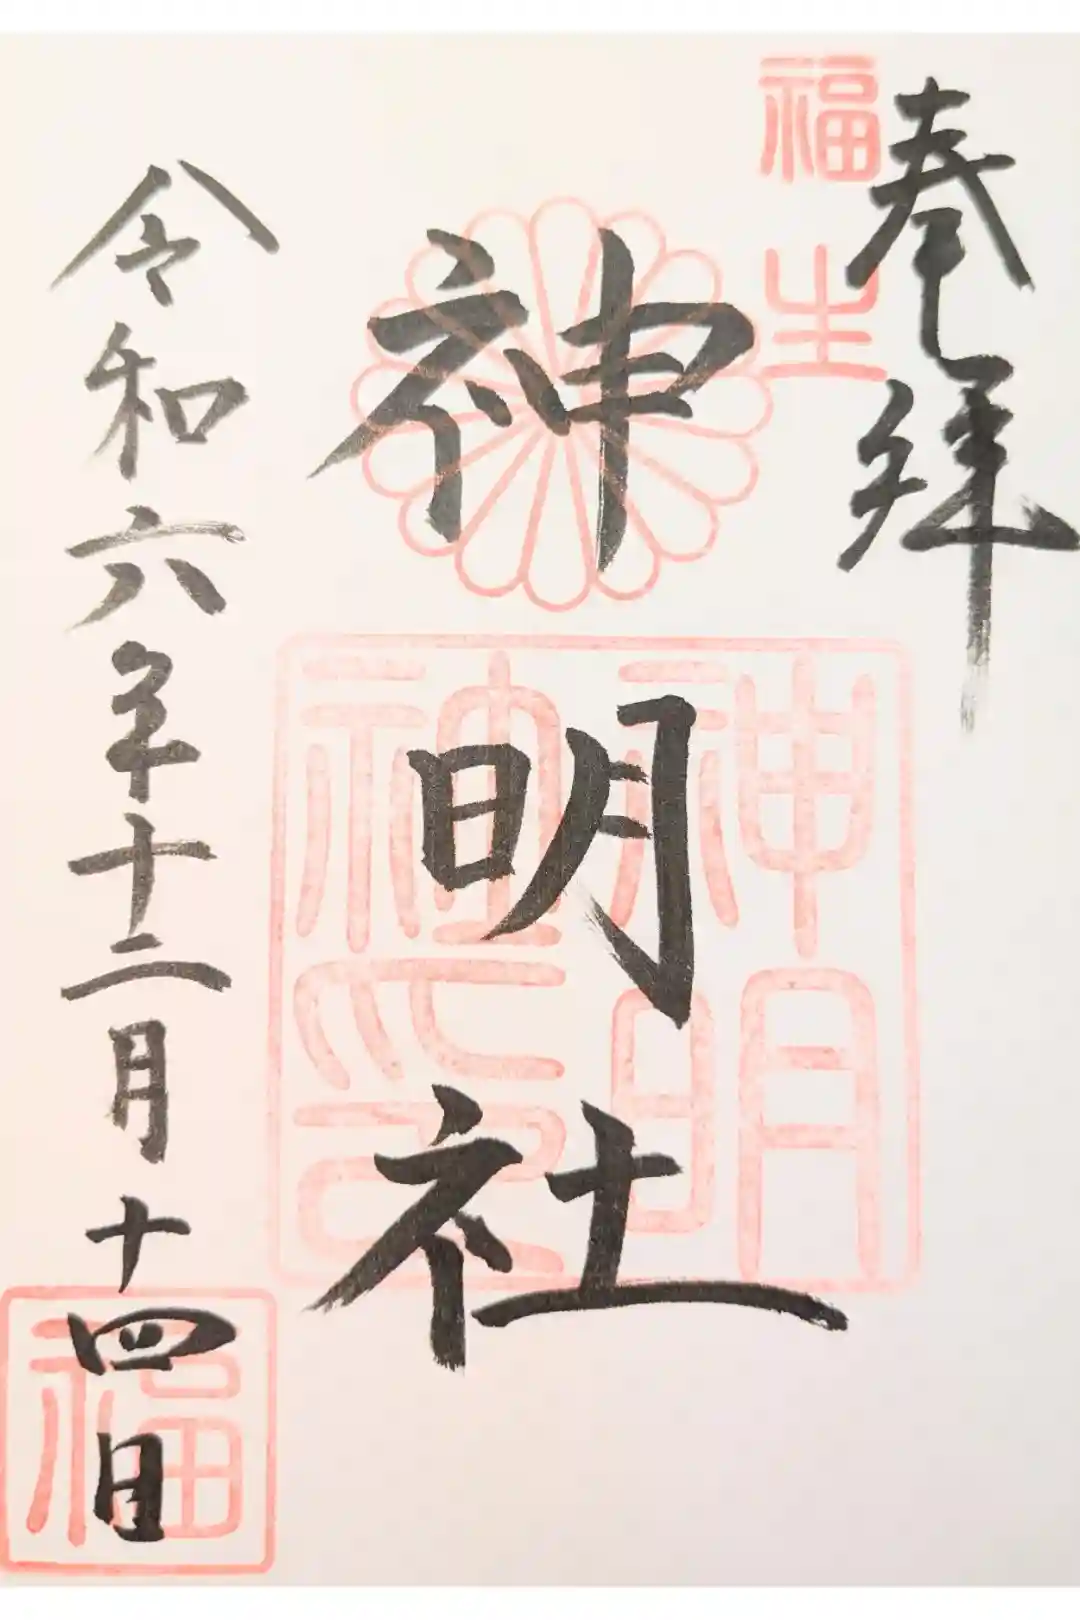 奉拝
福生
神明社
神明社印
令和六年十二月十四日
福